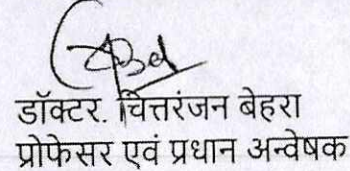 डॉक्टर. चित्तरंजन बेहरा
प्रोफेसर एवं प्रधान अन्वेषक